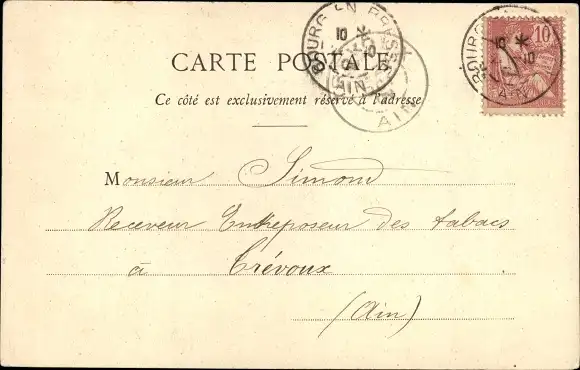 BOURG EN BRESSE
AIN
10
CARTE POSTALE
Ce côté est exclusivement réservé à l'adresse
Monsieur Simond
Receveur Entreposeur des tabacs
à Trévoux
(Ain)